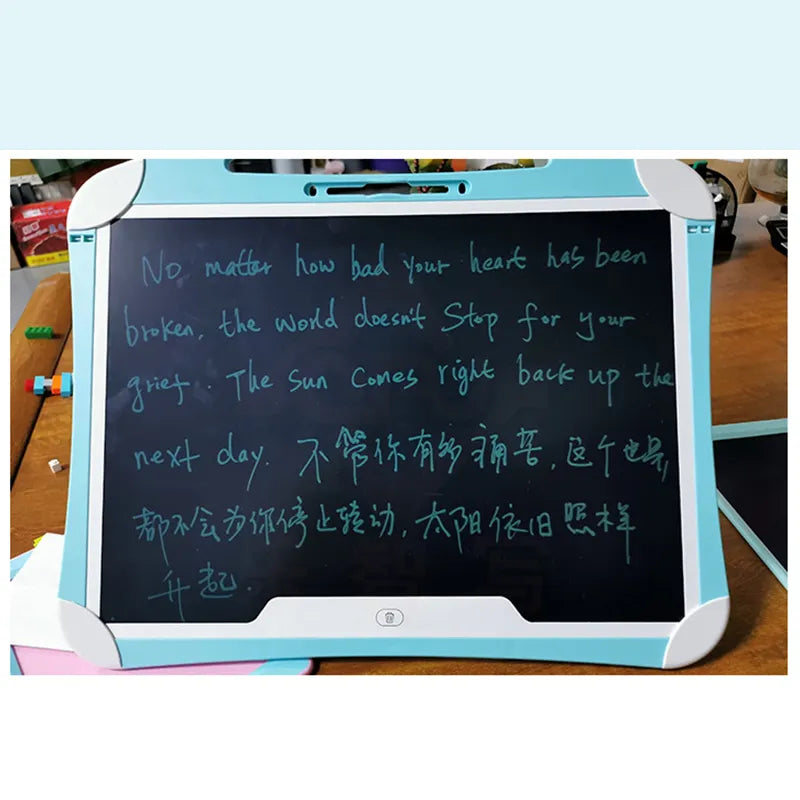 No matter how bad your heart has been
broken, the world doesn't Stop for your
grief. The Sun Comes right back up the
next day. 不管你有多痛苦,这个世界,
都不会为你停止转动,太阳依旧照样
升起.